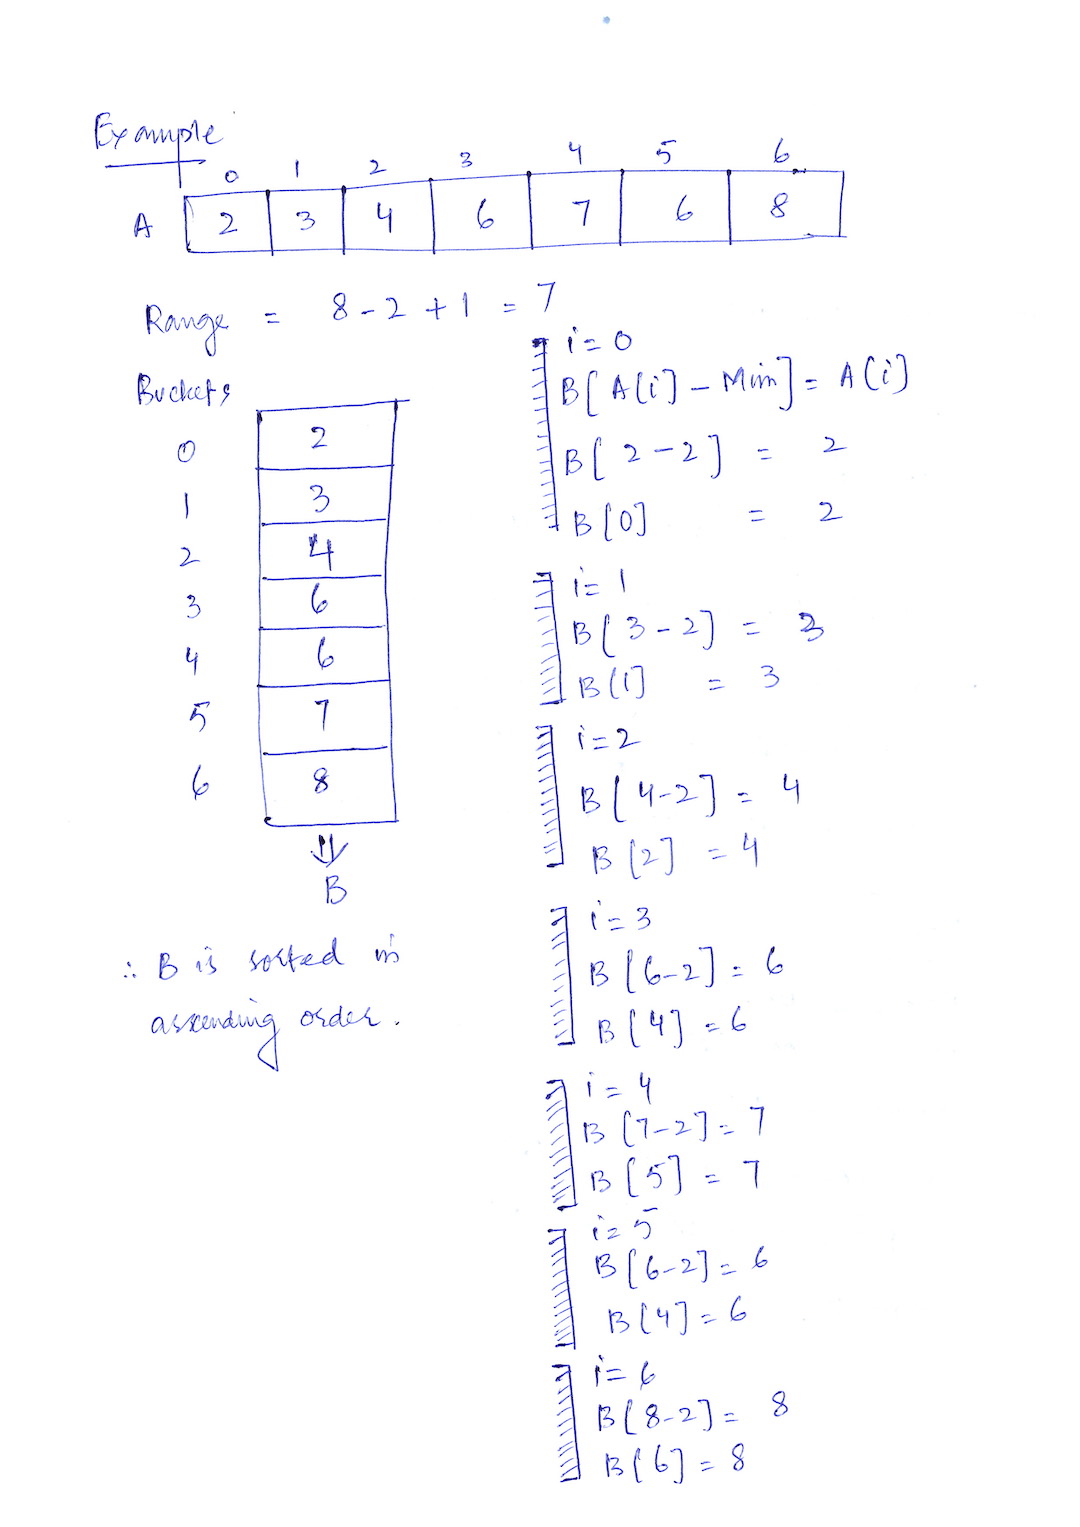 Example
0 1 2 3 4 5 6
A 2 3 4 6 7 6 8
Range = 8-2+1 = 7
Buckets
0 2
1 3
2 4
3 6
4 6
5 7
6 8
B
∴ B is sorted in
ascending order.
i=0
B[A[i]-Min] = A[i]
B[2-2] = 2
B[0] = 2
i=1
B[3-2] = 3
B[1] = 3
i=2
B[4-2] = 4
B[2] = 4
i=3
B[6-2] = 6
B[4] = 6
i=4
B[7-2] = 7
B[5] = 7
i=5
B[6-2] = 6
B[4] = 6
i=6
B[8-2] = 8
B[6] = 8